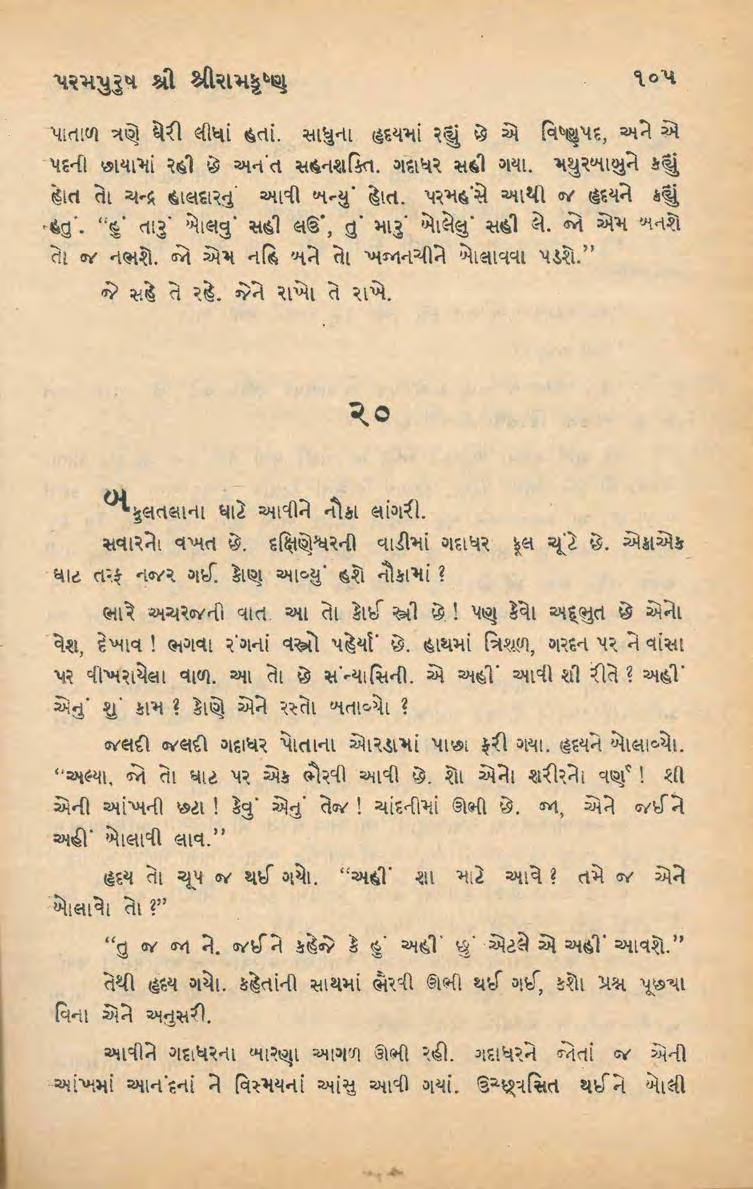 પરમપુરુષ શ્રી શ્રીરામકૃષ્ણ ૧૦૫
પાતાળ ત્રણે ઘેરી લીધાં હતાં. સાધુના હૃદયમાં રહ્યું છે એ વિષ્ણુપદ, અને એ
પદની છાયામાં રહી છે અનંત સહનશક્તિ. ગદાધર સહી ગયા. મથુરબાબુને કહ્યું
હોત તો ચન્દ્ર હાલદારનું આવી બન્યું હોત. પરમહંસે આથી જ હૃદયને કહ્યું
હતું. “હું તારું બોલવું સહી લઉં, તું મારું બોલેલું સહી લે. જો એમ બનશે
તો જ નભશે. જો એમ નહિ બને તો ખજાનચીને બોલાવવા પડશે.”
જે સહે તે રહે. જેને રાખો તે રાખે.
૨૦
બકુલતલાના ઘાટે આવીને નૌકા લાંગરી.
સવારનો વખત છે. દક્ષિણેશ્વરની વાડીમાં ગદાધર ફૂલ ચૂંટે છે. એકાએક
ઘાટ તરફ નજર ગઈ. કોણ આવ્યું હશે નૌકામાં ?
ભારે અચરજની વાત આ તો કોઈ સ્ત્રી છે ! પણ કેવો અદ્દભુત છે એનો
વેશ, દેખાવ ! ભગવા રંગનાં વસ્ત્રો પહેર્યાં છે. હાથમાં ત્રિશૂળ, ગરદન પર ને વાંસા
પર વીખરાયેલા વાળ. આ તો છે સંન્યાસિની. એ અહીં આવી શી રીતે ? અહીં
એનું શું કામ ? કોણે એને રસ્તો બતાવ્યો ?
જલદી જલદી ગદાધર પોતાના ઓરડામાં પાછા ફરી ગયા. હૃદયને બોલાવ્યો.
“અલ્યા, જો તો ઘાટ પર એક ભૈરવી આવી છે. શો એનો શરીરનો વર્ણ ! શી
એની આંખની છટા ! કેવું એનું તેજ ! ચાંદનીમાં ઊભી છે. જા, એને જઈને
અહીં બોલાવી લાવ.”
હૃદય તો ચૂપ જ થઈ ગયો. “અહીં શા માટે આવે ? તમે જ એને
બોલાવો તો ?”
“તુ જ જા ને. જઈને કહેજે કે હું અહીં છું એટલે એ અહીં આવશે.”
તેથી હૃદય ગયો. કહેતાંની સાથમાં ભૈરવી ઊભી થઈ ગઈ, કશો પ્રશ્ન પૂછ્યા
વિના એને અનુસરી.
આવીને ગદાધરના બારણા આગળ ઊભી રહી. ગદાધરને જોતાં જ એની
આંખમાં આનંદનાં ને વિસ્મયનાં આંસુ આવી ગયાં. ઉચ્છ્વસિત થઈને બોલી